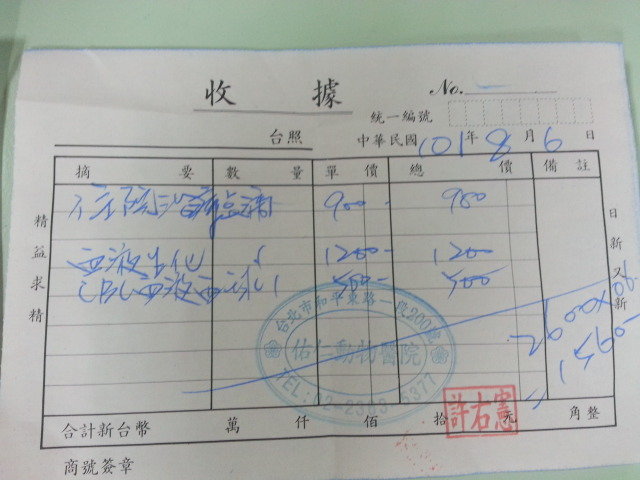 收 據
No.
統一編號
台照
中華民國 101 年 8 月 6 日
摘 要 數 量 單 價 總 價 備 註
住院治療 900 - 900
血液生化 1 1200 - 1200
CBC血液血球 1 500 - 500
2600×0.6
=1560
精益求精
日新又新
台北市和平東路一段200號
佑仁動物醫院
TEL:02-2393-
377
許右憲
合計新台幣 萬 仟 佰 拾 元 角整
商號簽章